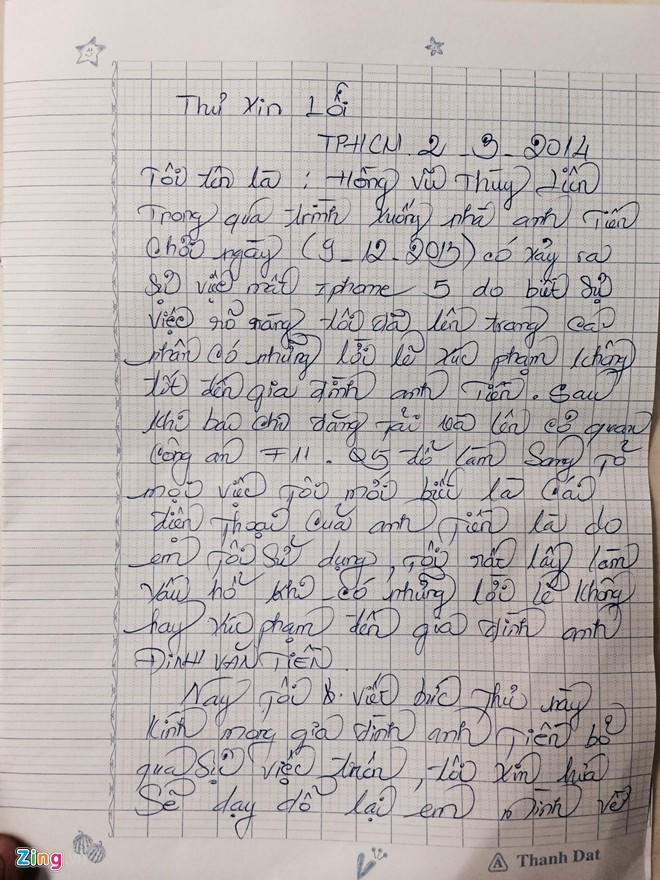 Thư Xin Lỗi
TPHCM. 2_3_2014
Tôi tên là : Hồng Vũ Thùy Liên
Trong quá trình xuống nhà anh Tiến
chơi ngày (9_12_2013) có xảy ra
sự việc mất iphone 5 do biết sự
việc rõ ràng tôi đã lên trang cá
nhân có những lời lẽ xúc phạm không
tốt đến gia đình anh Tiến. Sau
khi báo chí đăng tải và lên cơ quan
công an F11. Q5 để làm sáng tỏ
mọi việc tôi mới biết là cái
điện thoại của anh Tiến là do
em tôi sử dụng, tôi rất lấy làm
xấu hổ khi có những lời lẽ không
hay xúc phạm đến gia đình anh
ĐINH VĂN TIẾN.
Nay tôi viết bức thư này
kính mong gia đình anh Tiến bỏ
qua sự việc trên, tôi xin hứa
sẽ dạy dỗ lại em mình về
Zing
Thanh Dat